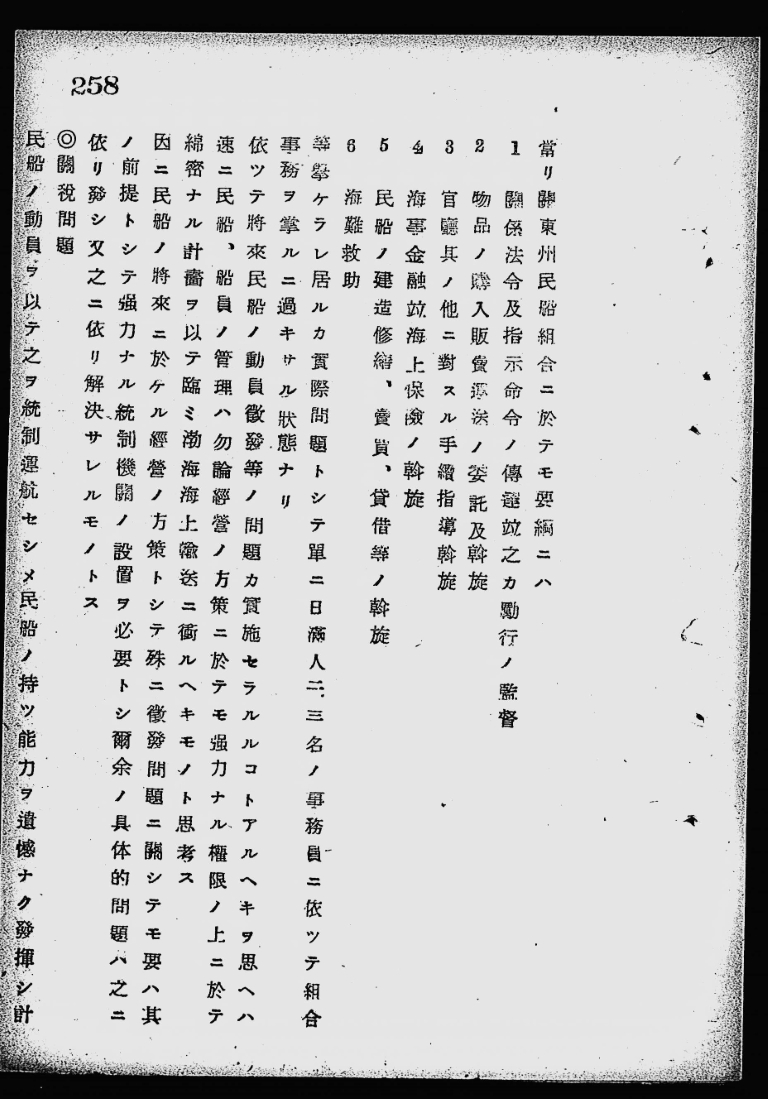 258
當リ關東州民船組合ニ於テモ要綱ニハ
1 關係法令及指示命令ノ傳達竝之カ勵行ノ監督
2 物品ノ購入販賣運送ノ委託及斡旋
3 官廳其ノ他ニ對スル手續指導斡旋
4 海事金融竝海上保險ノ斡旋
5 民船ノ建造修繕、賣買、貸借等ノ斡旋
6 海難救助
等擧ケラレ居ルカ實際問題トシテ單ニ日滿人二、三名ノ事務員ニ依ツテ組合
事務ヲ掌ルニ過キサル狀態ナリ
依ツテ將來民船ノ動員徵發等ノ問題カ實施セラルルコトアルヘキヲ思ヘハ
速ニ民船、船員ノ管理ハ勿論經營ノ方策ニ於テモ强力ナル權限ノ上ニ於テ
綿密ナル計畵ヲ以テ臨ミ渤海海上輸送ニ衝ルヘキモノト思考ス
因ニ民船ノ將來ニ於ケル經營ノ方策トシテ殊ニ徵發問題ニ關シテモ要ハ其
ノ前提トシテ强力ナル統制機關ノ設置ヲ必要トシ爾余ノ具体的問題ハ之ニ
依リ發シ又之ニ依リ解決サレルモノトス
◎關稅問題
民船ノ動員ヲ以テ之ヲ統制運航セシメ民船ノ持ツ能力ヲ遺憾ナク發揮シ計